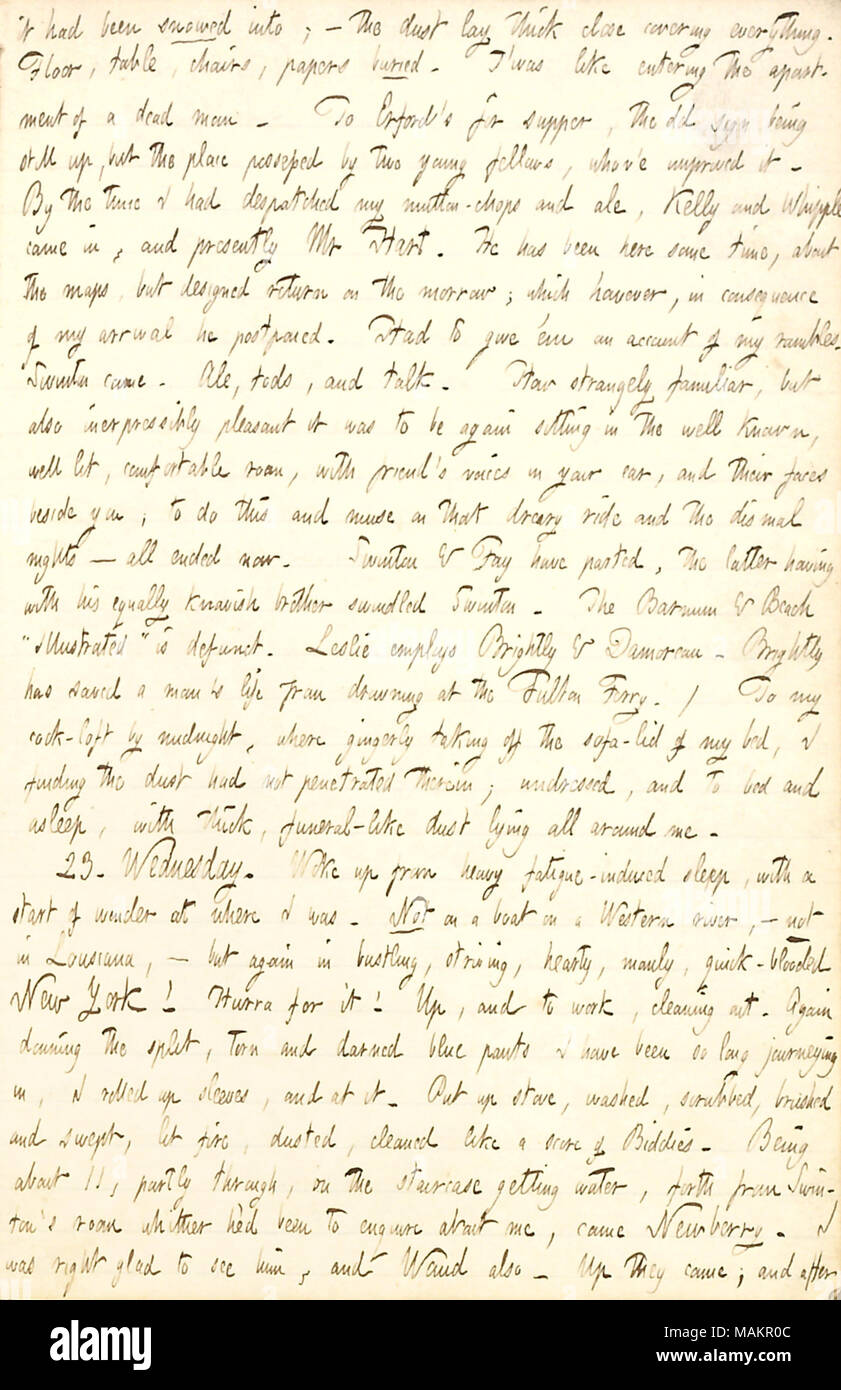 it had been snowed into ; — the dust lay thick close covering everything.
Floor, table, chairs, papers buried. T'was like entering the apart-
ment of a dead man. To Erford's for supper, the old sign being
still up, but the place possessed by two young fellows, who've improved it.
By the time I had despatched my mutton-chops and ale, Kelly and Whipple
came in, and presently Mr Hart. He has been here some time, about
the maps, but designed return on the morrow; which however, in consequence
of my arrival he postponed. Had to give 'em an account of my rambles.
Swinton came. Ale, tods, and talk. How strangely familiar, but
also inexpressibly pleasant it was to be again sitting in the well known,
well lit, comfortable room, with friend's voices in your ear, and their faces
beside you; to do this and muse on that dreary ride and the dismal
nights — all ended now. Swinton & Fay have parted, the latter having
with his equally knavish brother swindled Swinton. The Barnum & Beach
"Illustrated" is defunct. Leslie employs Brightly & Damoreau - Brightly
has saved a man's life from drowning at the Fulton Ferry. / To my
cock-loft by midnight, where gingerly taking off the sofa-lid of my bed, I
finding the dust had not penetrated therein; undressed, and to bed and
asleep, with thick, funeral-like dust lying all around me.
23. Wednesday. Woke up from heavy fatigue-induced sleep, with a
start of wonder at where I was. Not on a boat on a Western river, — not
in Lousiana, — but again in bustling, striving, hearty, manly, quick-blooded
New York! Hurra for it! Up, and to work, cleaning out. Again
donning the split, torn and darned blue pants I have been so long journeying
in, I rolled up sleeves, and at it. Put up stove, washed, scrubbed, brushed
and swept, lit fire, dusted, cleaned like a score of Biddies. Being
about 11, partly through, on the staircase getting water, forth from Swin-
ton's room whither he'd been to enquire about me, came Newberry. I
was right glad to see him, and Waud also. Up they came; and after
alamy
Image ID: MAKR0C
www.alamy.com